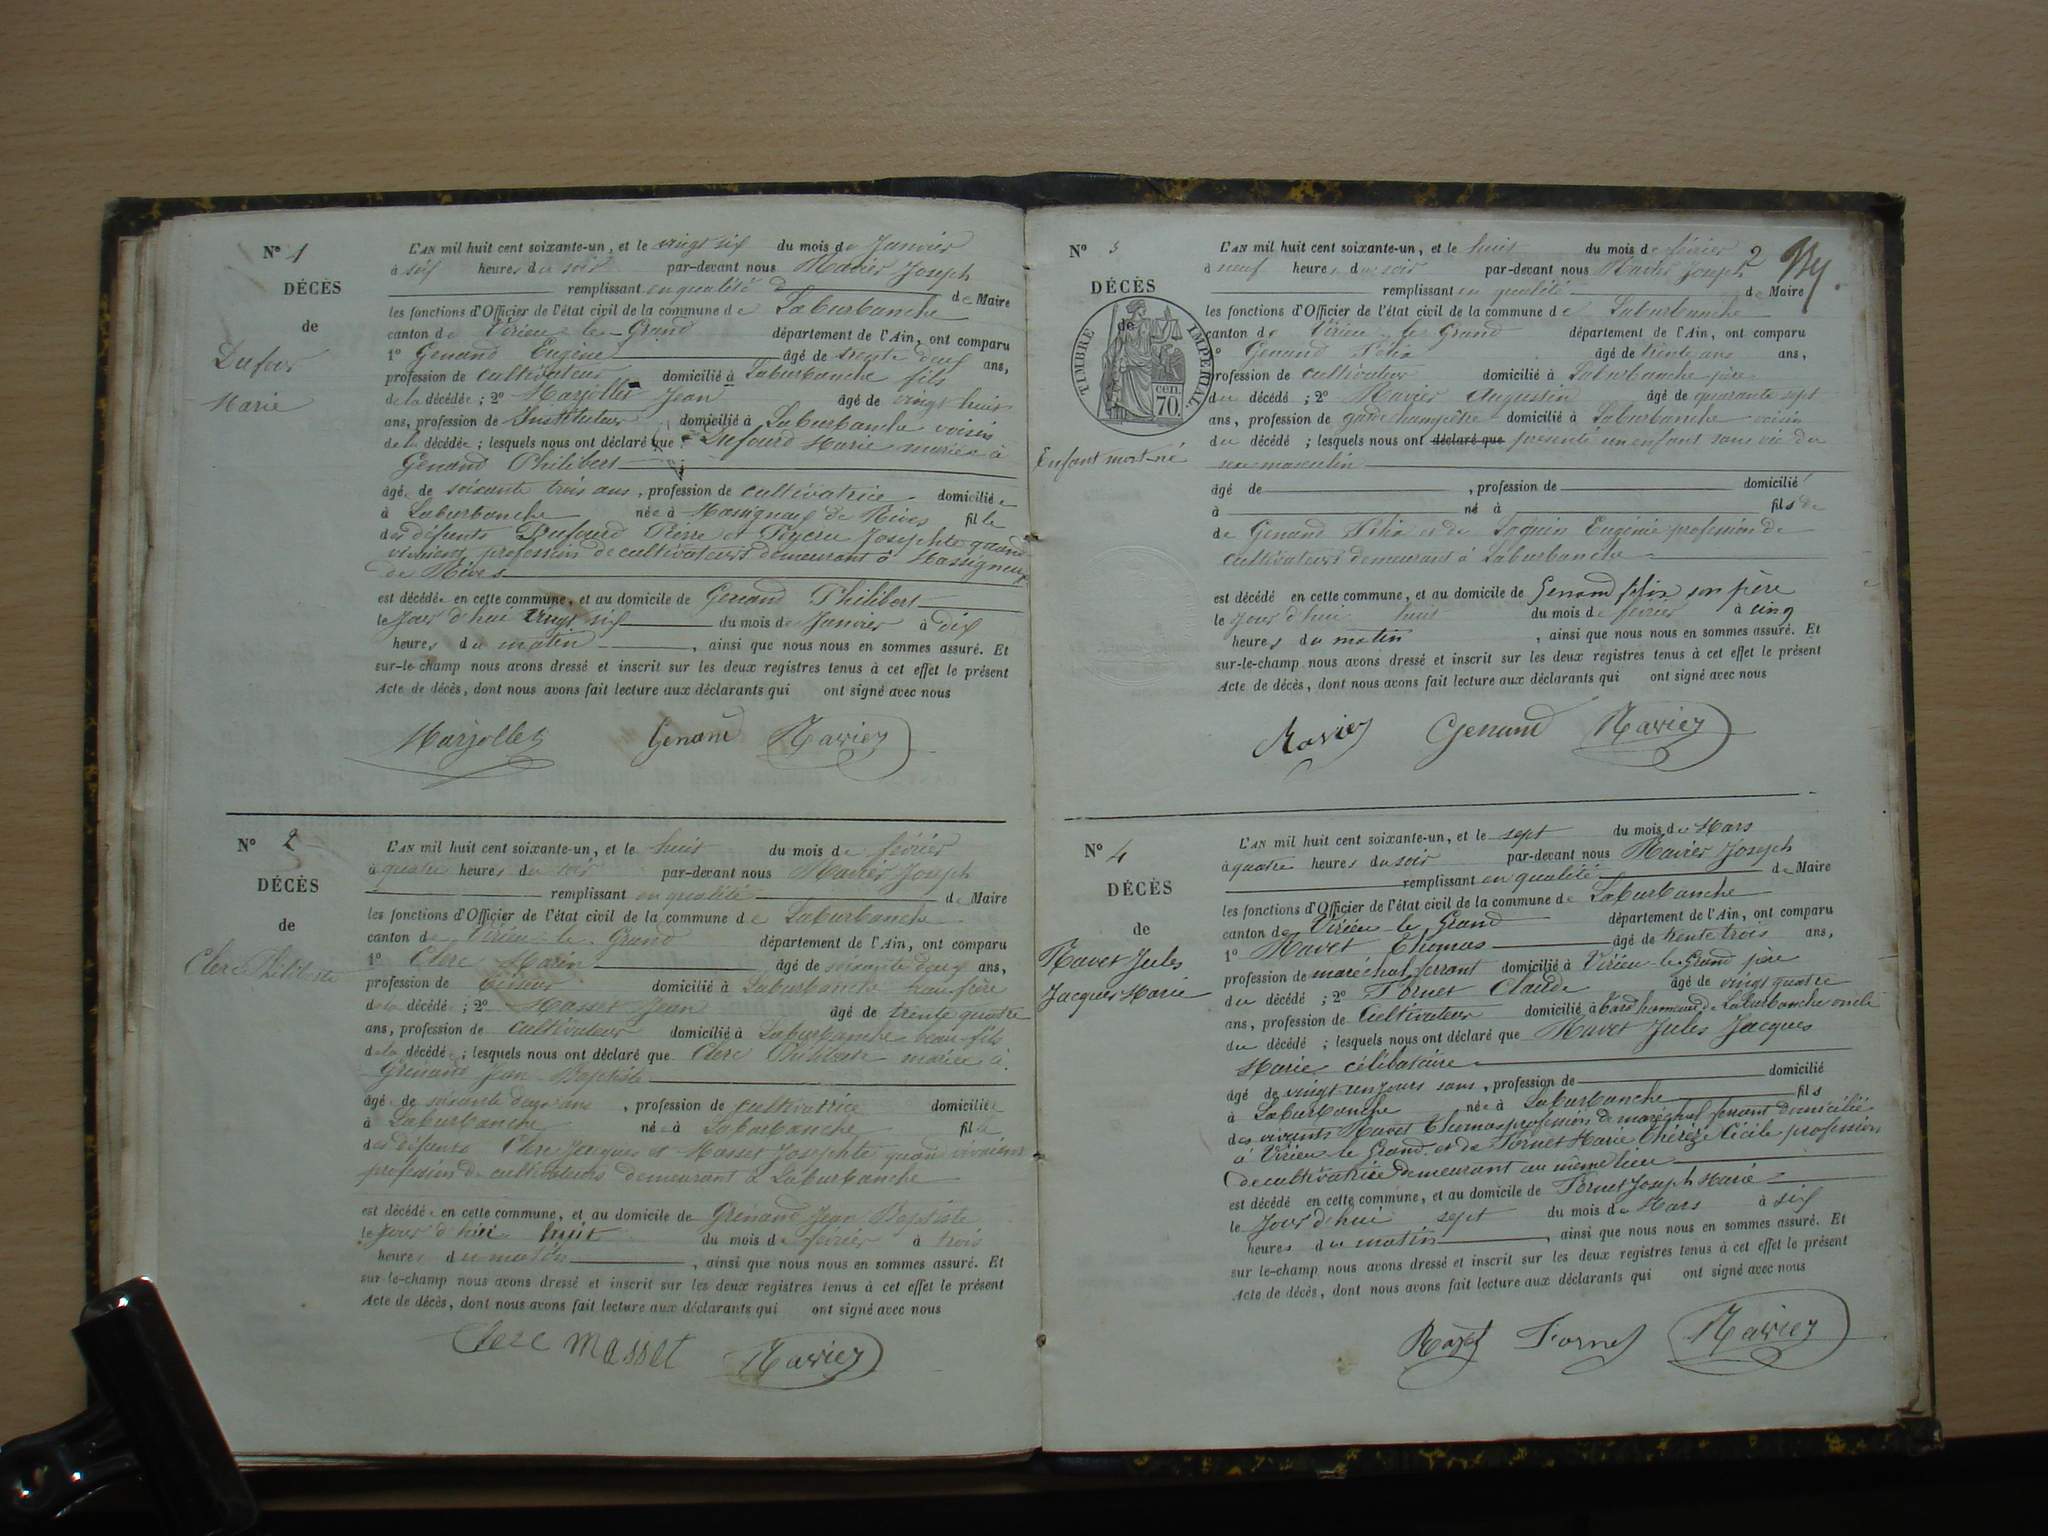 N° 1
DÉCÈS
de
Dufour
Marie
L'AN mil huit cent soixante-un, et le vingt six du mois de Janvier
à six heures du soir par-devant nous Ravier Joseph
remplissant en qualité de Maire
les fonctions d'Officier de l'état civil de la commune de Laburbanche
canton de Virieu-le-Grand département de l'Ain, ont comparu
1° Genand Eugène âgé de trente deux ans,
profession de cultivateur domicilié à Laburbanche fils
de la décédée ; 2° Marjollet Jean âgé de vingt huit
ans, profession de Instituteur domicilié à Laburbanche voisin
de la décédée ; lesquels nous ont déclaré que Dufourd Marie mariée à
Genand Philibert
âgée de soixante trois ans, profession de cultivatrice domiciliée
à Laburbanche née à Massigneux de Rives fille
des défunts Dufourd Pierre et Josephte quand
vivaient profession de cultivateurs demeurant à Massigneux
de Rives
est décédée en cette commune, et au domicile de Genand Philibert
le Jour d'hui vingt six du mois de Janvier à dix
heures du matin, ainsi que nous nous en sommes assuré. Et
sur-le-champ nous avons dressé et inscrit sur les deux registres tenus à cet effet le présent
Acte de décès, dont nous avons fait lecture aux déclarants qui ont signé avec nous
Marjollet Genand Ravier
N° 2
DÉCÈS
de
Clerc Philiberte
L'AN mil huit cent soixante-un, et le huit du mois de février
à quatre heures du soir par-devant nous Ravier Joseph
remplissant en qualité de Maire
les fonctions d'Officier de l'état civil de la commune de Laburbanche
canton de Virieu-le-Grand département de l'Ain, ont comparu
1° Clerc Marin âgé de soixante deux ans,
profession de tisseur domicilié à Laburbanche beau frère
de la décédée ; 2° Masset Jean âgé de trente quatre
ans, profession de cultivateur domicilié à Laburbanche beau-fils
de la décédée ; lesquels nous ont déclaré que Clerc Philiberte mariée à
Grenand Jean-Baptiste
âgée de soixante deux ans, profession de cultivatrice domiciliée
à Laburbanche née à Laburbanche fille
des défunts Clerc Jacques et Masset Josephte quand vivaient
profession de cultivateurs demeurant à Laburbanche
est décédée en cette commune, et au domicile de Grenand Jean Baptiste
le Jour d'hui huit du mois de février à trois
heures du matin, ainsi que nous nous en sommes assuré. Et
sur-le-champ nous avons dressé et inscrit sur les deux registres tenus à cet effet le présent
Acte de décès, dont nous avons fait lecture aux déclarants qui ont signé avec nous
Clerc Masset Ravier
2
N° 3
DÉCÈS
de
TIMBRE IMPÉRIAL
cen 70.
Enfant mort-né
L'AN mil huit cent soixante-un, et le huit du mois de février
à neuf heures du soir par-devant nous Ravier Joseph
remplissant en qualité de Maire
les fonctions d'Officier de l'état civil de la commune de Laburbanche
canton de Virieu-le-Grand département de l'Ain, ont comparu
1° Genand Félix âgé de trente ans ans,
profession de cultivateur domicilié à Laburbanche père
du décédé ; 2° Ravier Augustin âgé de quarante sept
ans, profession de garde champêtre domicilié à Laburbanche voisin
du décédé ; lesquels nous ont déclaré que présenté un enfant sans vie du
sexe masculin
âgé de, profession de domicilié
à né à fils de
de Genand Félix et de Eugénie profession de
cultivateurs demeurant à Laburbanche
est décédé en cette commune, et au domicile de Genand félix son père
le Jour d'hui huit du mois de février à cinq
heures du matin, ainsi que nous nous en sommes assuré. Et
sur-le-champ nous avons dressé et inscrit sur les deux registres tenus à cet effet le présent
Acte de décès, dont nous avons fait lecture aux déclarants qui ont signé avec nous
Ravier Genand Ravier
N° 4
DÉCÈS
de
Ravet Jules
Jacques Marie
L'AN mil huit cent soixante-un, et le sept du mois de Mars
à quatre heures du soir par-devant nous Ravier Joseph
remplissant en qualité de Maire
les fonctions d'Officier de l'état civil de la commune de Laburbanche
canton de Virieu le Grand département de l'Ain, ont comparu
1° Ravet Thomas âgé de trente trois ans,
profession de maréchal ferrant domicilié à Virieu-le-Grand père
du décédé ; 2° Fornet Claude âgé de vingt quatre
ans, profession de Cultivateur domicilié à hameau de Laburbanche oncle
du décédé ; lesquels nous ont déclaré que Ravet Jules Jacques
Marie célibataire
âgé de vingt un jours sans, profession de domicilié
à Laburbanche née à Laburbanche fils
des vivants Ravet Thomas profession de maréchal ferrant domicilié
à Virieu le Grand et de Fornet Marie Thérèze Cécile profession
de cultivatrice demeurant au même lieu
est décédé en cette commune, et au domicile de Fornet Joseph Marie
le Jour d'hui sept du mois de Mars à six
heures du matin, ainsi que nous nous en sommes assuré. Et
sur-le-champ nous avons dressé et inscrit sur les deux registres tenus à cet effet le présent
Acte de décès, dont nous avons fait lecture aux déclarants qui ont signé avec nous
Ravet Fornet Ravier